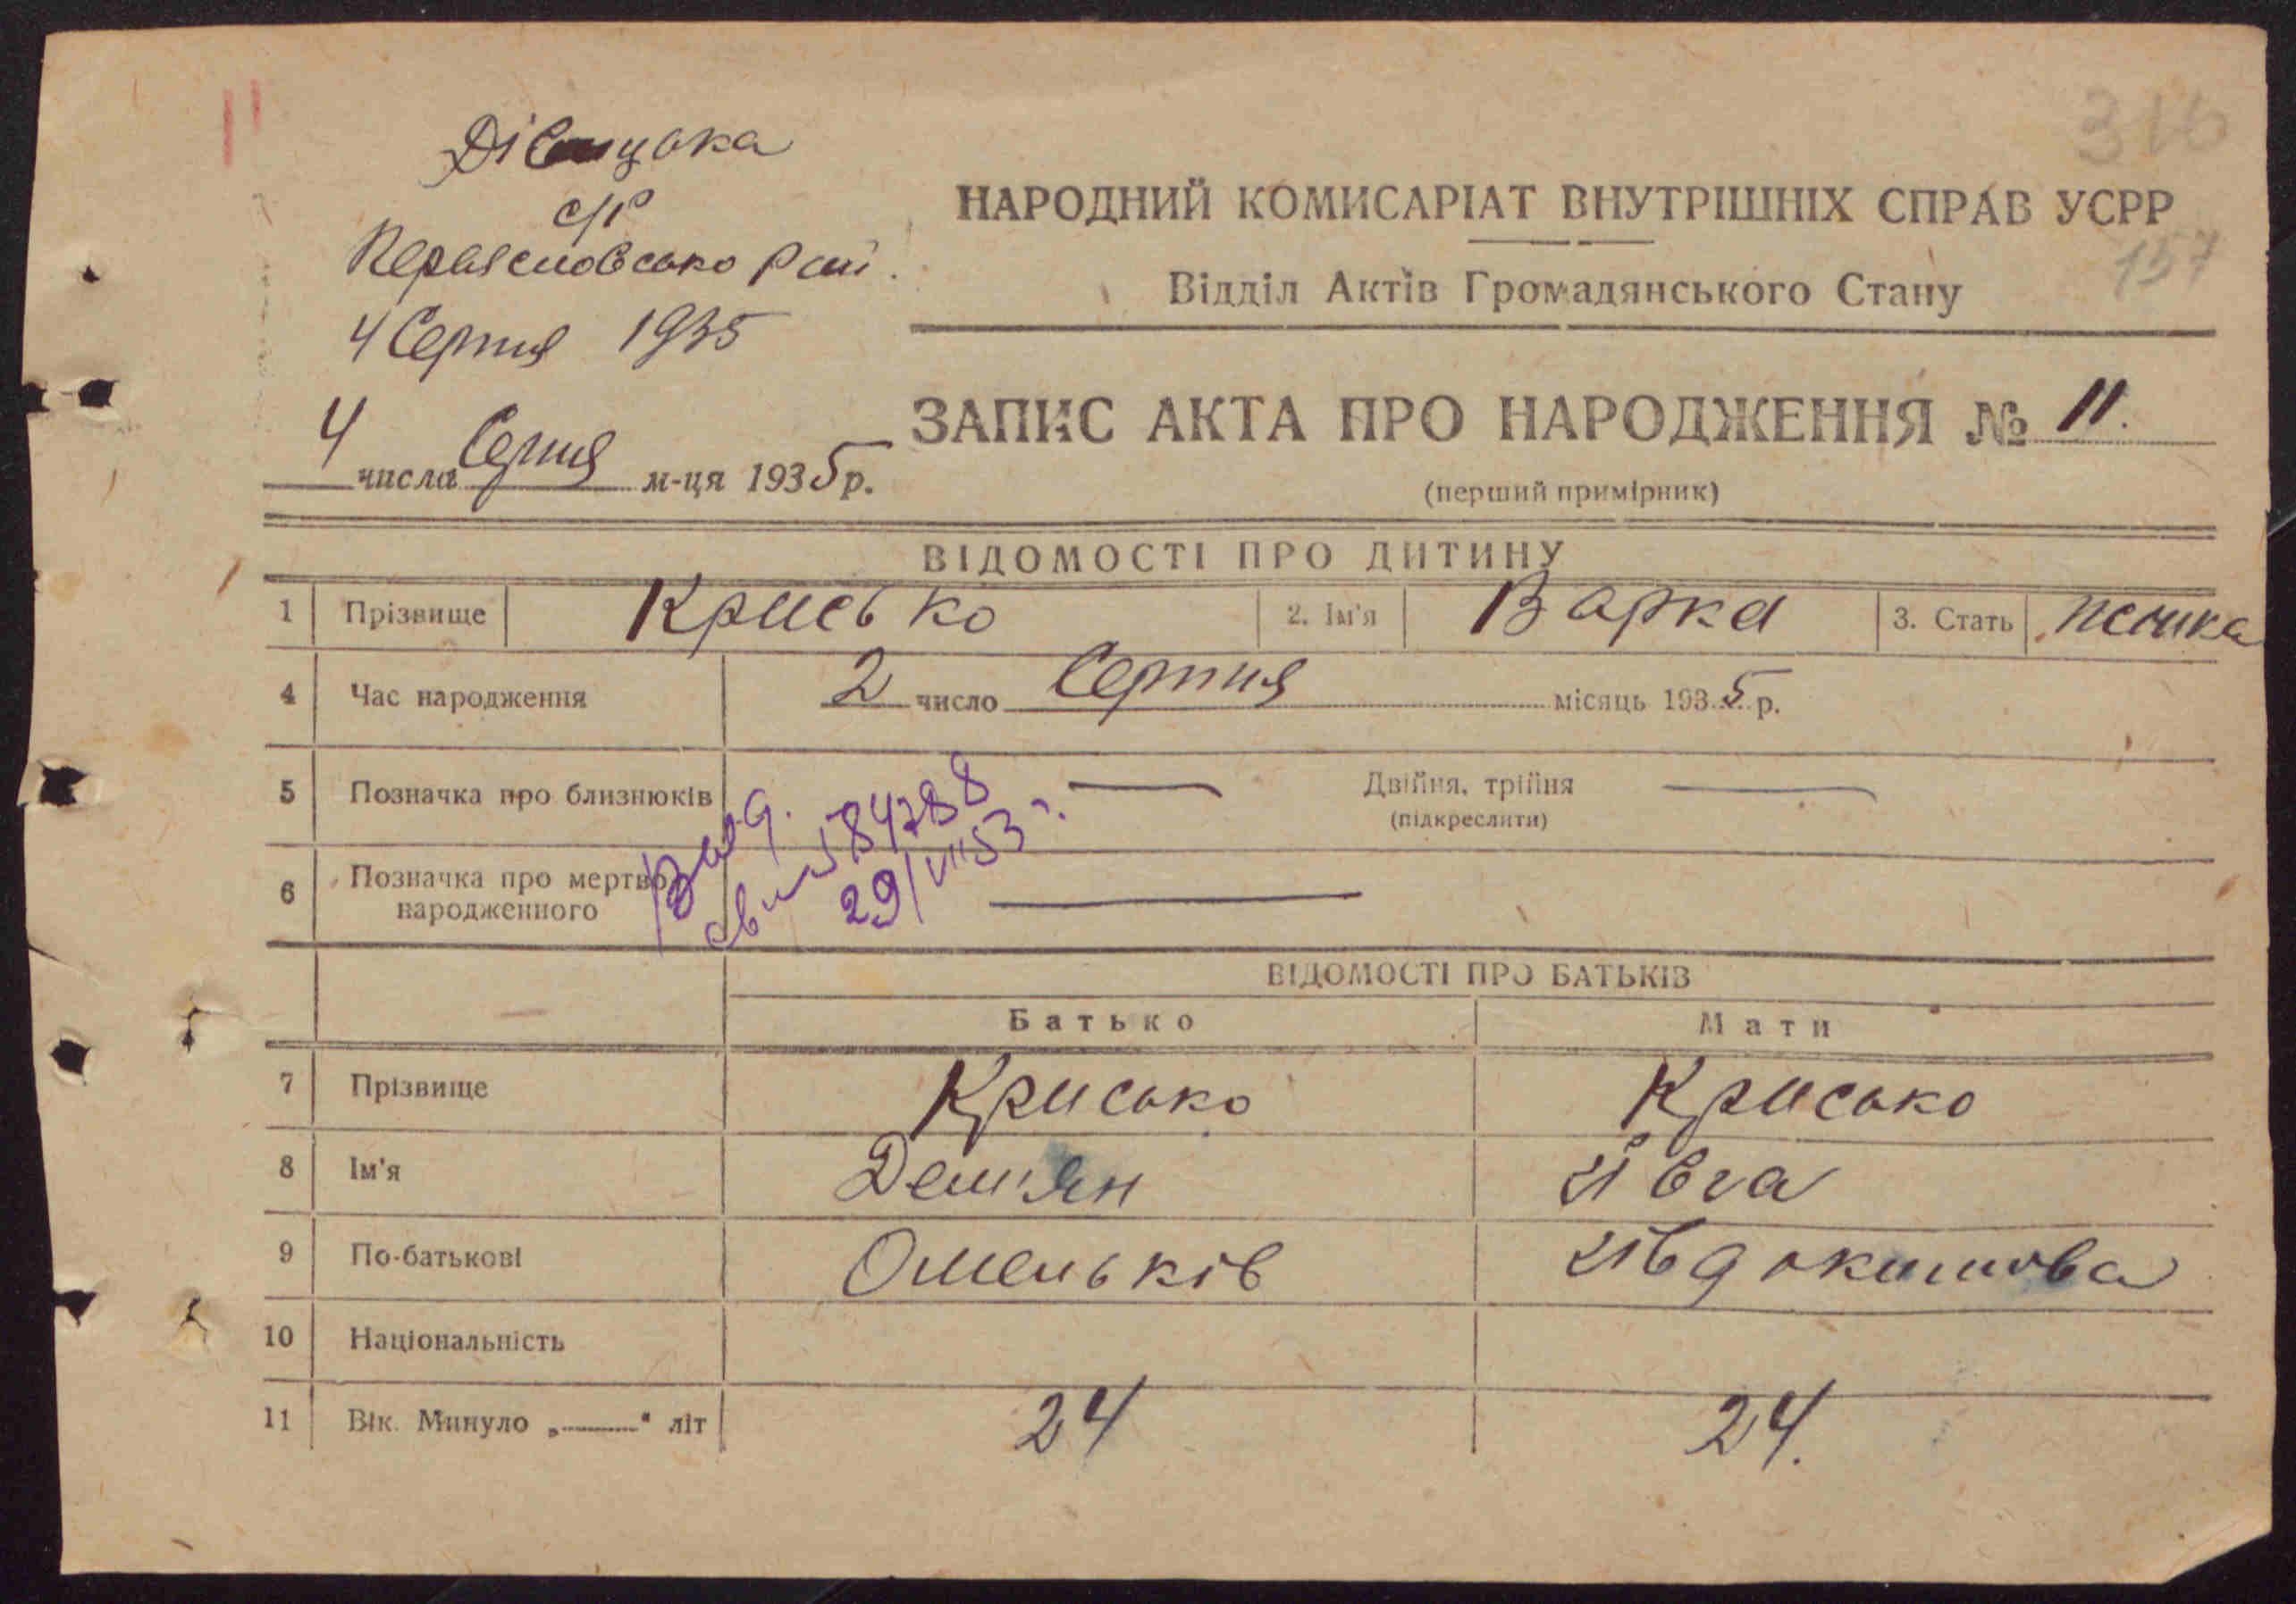 316
Дівицька
с/р
Переяславсько рай.
4 Серпня 1935
4 числа Серпня м-ця 1935 р.
НАРОДНИЙ КОМИСАРІАТ ВНУТРІШНІХ СПРАВ УСРР
157
Відділ Актів Громадянського Стану
ЗАПИС АКТА ПРО НАРОДЖЕННЯ № 11.
(перший примірник)
ВІДОМОСТІ ПРО ДИТИНУ
1 Прізвище Крисько 2. Ім'я Варка 3. Стать
4 Час народження 2 число Серпня місяць 1935 р.
5 Позначка про близнюків — Двійня, трійня —
(підкреслити)
6 Позначка про мертво-
народженного —
29/VII 53 г.
ВІДОМОСТІ ПРО БАТЬКІВ
Батько Мати
7 Прізвище Крисько Крисько
8 Ім'я Дем'ян Ївга
9 По-батькові ОмельківЇвдокимова
10 Національність
11 Вік. Минуло „———" літ 24 24.